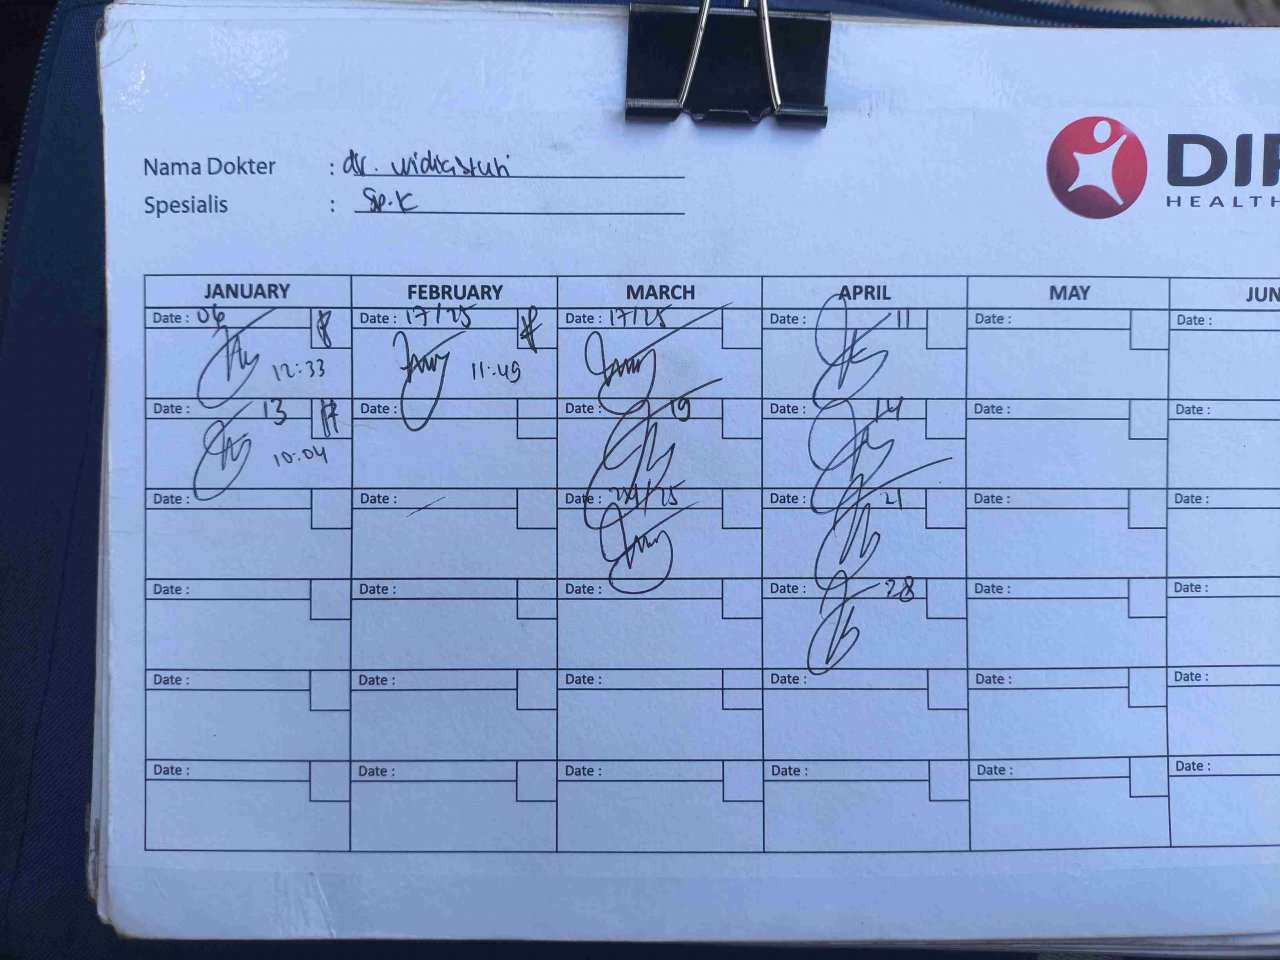 Nama Dokter : dr. Widiastuti
Spesialis : Sp.K
DI
HEALTH
JANUARY FEBRUARY MARCH APRIL MAY JUN
Date : 06 Date : 17/25 Date : 17/25 Date : 11 Date : Date :
12:33 11:49
Date : 13 Date : Date : 19 Date : 14 Date : Date :
10:04
Date : Date : Date : 24/25 Date : 21 Date : Date :
Date : Date : Date : Date : 28 Date : Date :
Date : Date : Date : Date : Date : Date :
Date : Date : Date : Date : Date : Date :